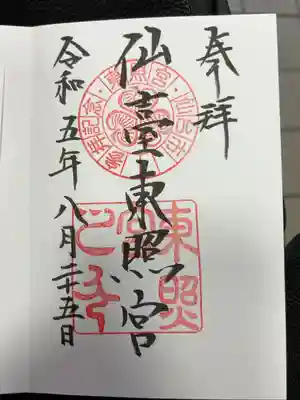 奉拝
仙臺東照宮
令和五年八月二十五日
東照
宮